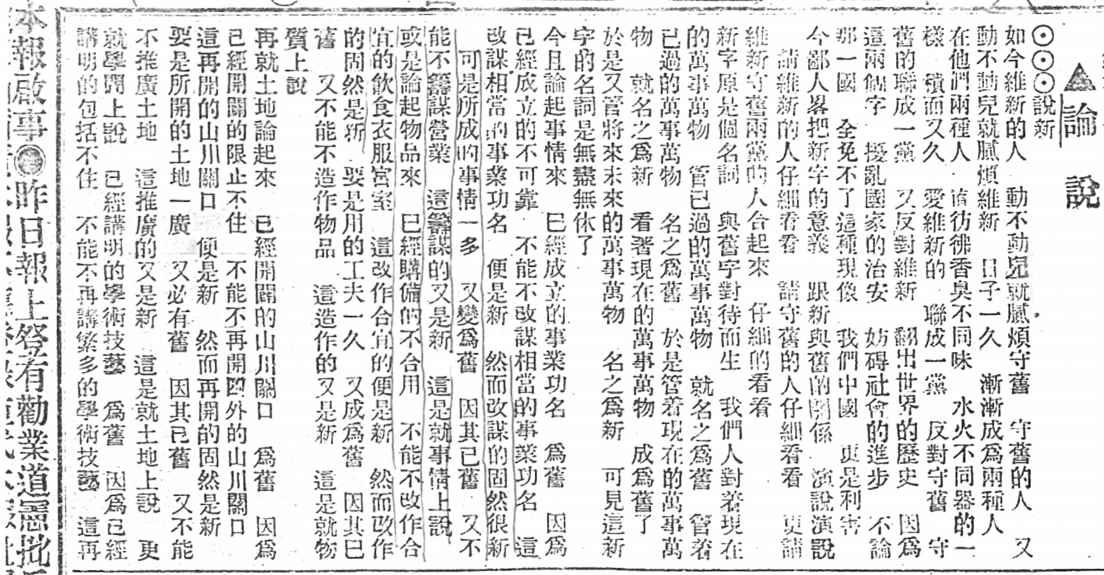 ▲論說
⊙⊙⊙說新
如今維新的人 動不動兒就膩煩守舊 守舊的人 又
動不動兒就膩煩維新 日子一久 漸漸成爲兩種人
在他們兩種人 直彷彿香臭不同味 水火不同器的一
樣 積而又久 愛維新的 聯成一黨 反對守舊 守
舊的聯成一黨 又反對維新 翻出世界的歷史 因爲
這兩個字 擾亂國家的治安 妨碍社會的進步 不論
那一國 全免不了這種現像 我們中國 更是利害
今鄙人畧把新字的意義 跟新與舊的關係 演說演說
請維新的人仔細看看 請守舊的人仔細看看 更請
維新守舊兩黨的人合起來 仔細的看看
新字原是個名詞 與舊字對待而生 我們人對着現在
的萬事萬物 管已過的萬事萬物 就名之爲舊 管着
已過的萬事萬物 名之爲舊 於是管着現在的萬事萬
物 就名之爲新 看著現在的萬事萬物 成爲舊了
於是又管將來未來的萬事萬物 名之爲新 可見這新
字的名詞是無盡無休了
今且論起事情來 已經成立的事業功名 爲舊 因爲
已經成立的不可靠 不能不改謀相當的事業功名 這
改謀相當的事業功名 便是新 然而改謀的固然很新
可是所成的事情一多 又變爲舊 因其已舊 又不
能不籌謀營業 這籌謀的又是新 這是就事情上說
或是論起物品來 已經購備的不合用 不能不改作合
宜的飲食衣服宮室 這改作合宜的便是新 然而改作
的固然是新 要是用的工夫一久 又成爲舊 因其已
舊 又不能不造作物品 這造作的又是新 這是就物
質上說
再就土地論起來 已經開闢的山川關口 爲舊 因爲
已經開闢的限止不住 不能不再開四外的山川關口
這再開的山川關口 便是新 然而再開的固然是新
要是所開的土地一廣 又必有舊 因其已舊 又不能
不推廣土地 這推廣的又是新 這是就土地上說 更
就學問上說 已經講明的學術技藝 爲舊 因爲已經
講明的包括不住 不能不再講繁多的學術技藝 這再
本報啟事◉昨日報上登有勸業道憲批